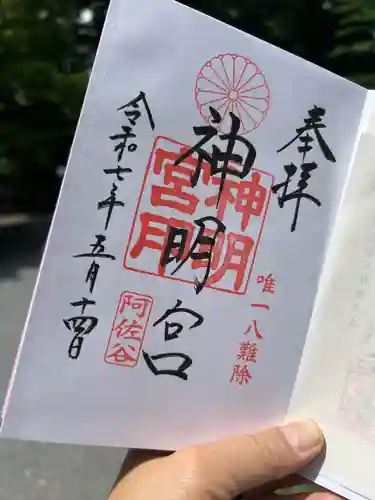 奉拝
唯一八難除
神明宮
神明
宮印
阿佐谷
令和七年五月十四日